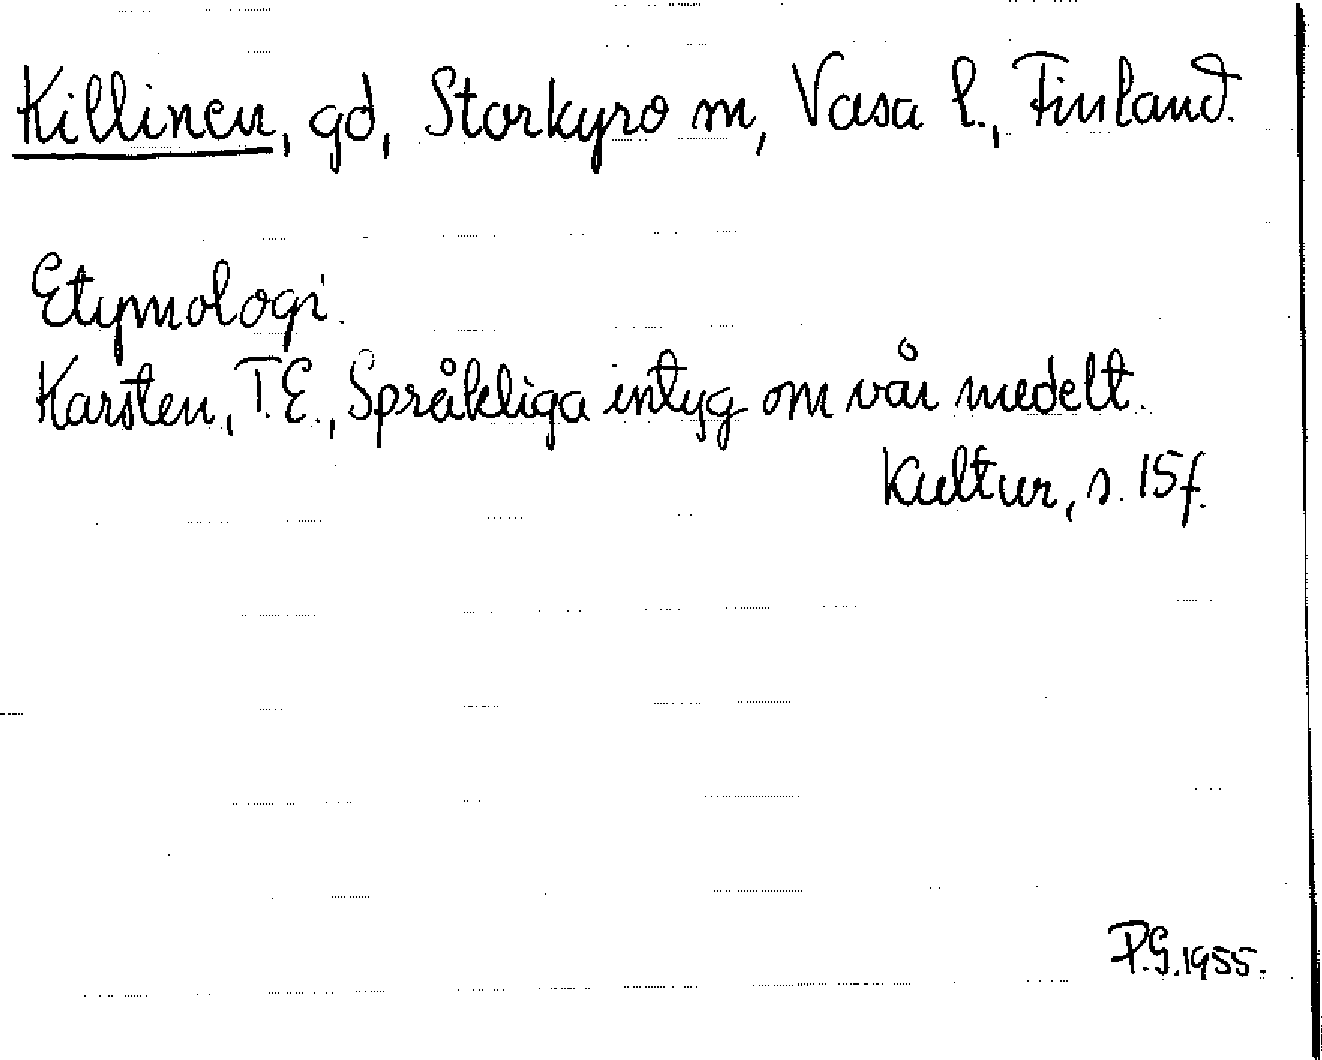 Killinen, gd, Storkyro m, Vasa l., Finland.
Etymologi.
Karsten, T.E., Språkliga intyg om vår medelt.
Kultur, s. 15f.
P.G. 1955.